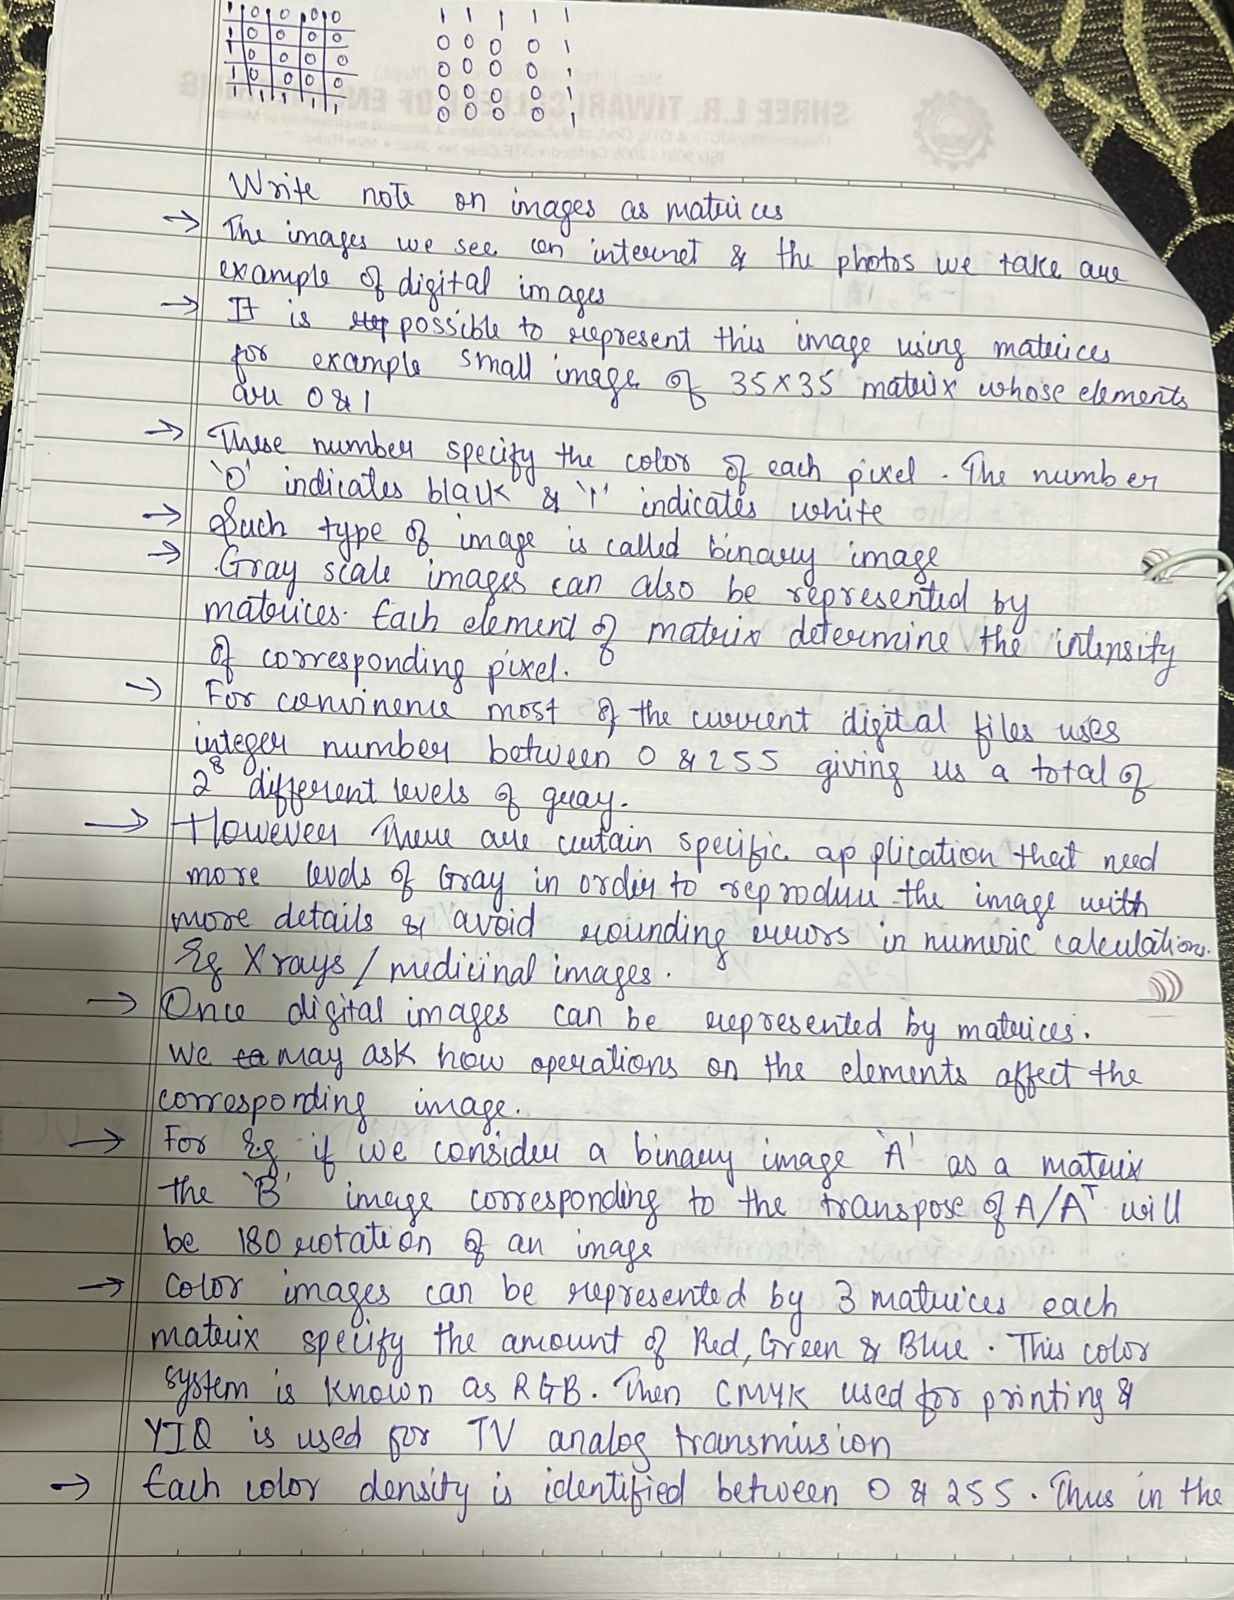 1 0 0 0 0 1 1 1 1 1
1 0 0 0 0 0 0 0 0 1
1 0 0 0 0 0 0 0 0 1
1 0 0 0 0 0 0 0 0 1
1 1 1 1 1 0 0 0 0 1
Write note on images as matrices
→ The images we see on internet & the photos we take are
example of digital images
→ It is possible to represent this image using matrices
for example small image of 35×35 matrix whose elements
are 0 & 1
→ These number specify the color of each pixel. The number
'0' indicates black & '1' indicates white
→ Such type of image is called binary image
→ Gray scale images can also be represented by
matrices. Each element of matrix determine the intensity
of corresponding pixel.
→ For convinence most of the current digital files uses
integer number between 0 & 255 giving us a total of
2⁸ different levels of gray.
→ However There are certain specific application that need
more levels of Gray in order to reproduce the image with
more details & avoid rounding errors in numeric calculations.
Eg X rays / medicinal images.
→ Once digital images can be represented by matrices.
We may ask how operations on the elements affect the
corresponding image.
→ For Eg if we consider a binary image 'A' as a matrix
the 'B' image corresponding to the transpose of A/Aᵀ will
be 180 rotation of an image
→ Color images can be represented by 3 matrices each
matrix specify the amount of Red, Green & Blue. This color
system is known as RGB. Then CMYK used for printing &
YIQ is used for TV analog transmission
→ Each color density is identified between 0 & 255. Thus in the